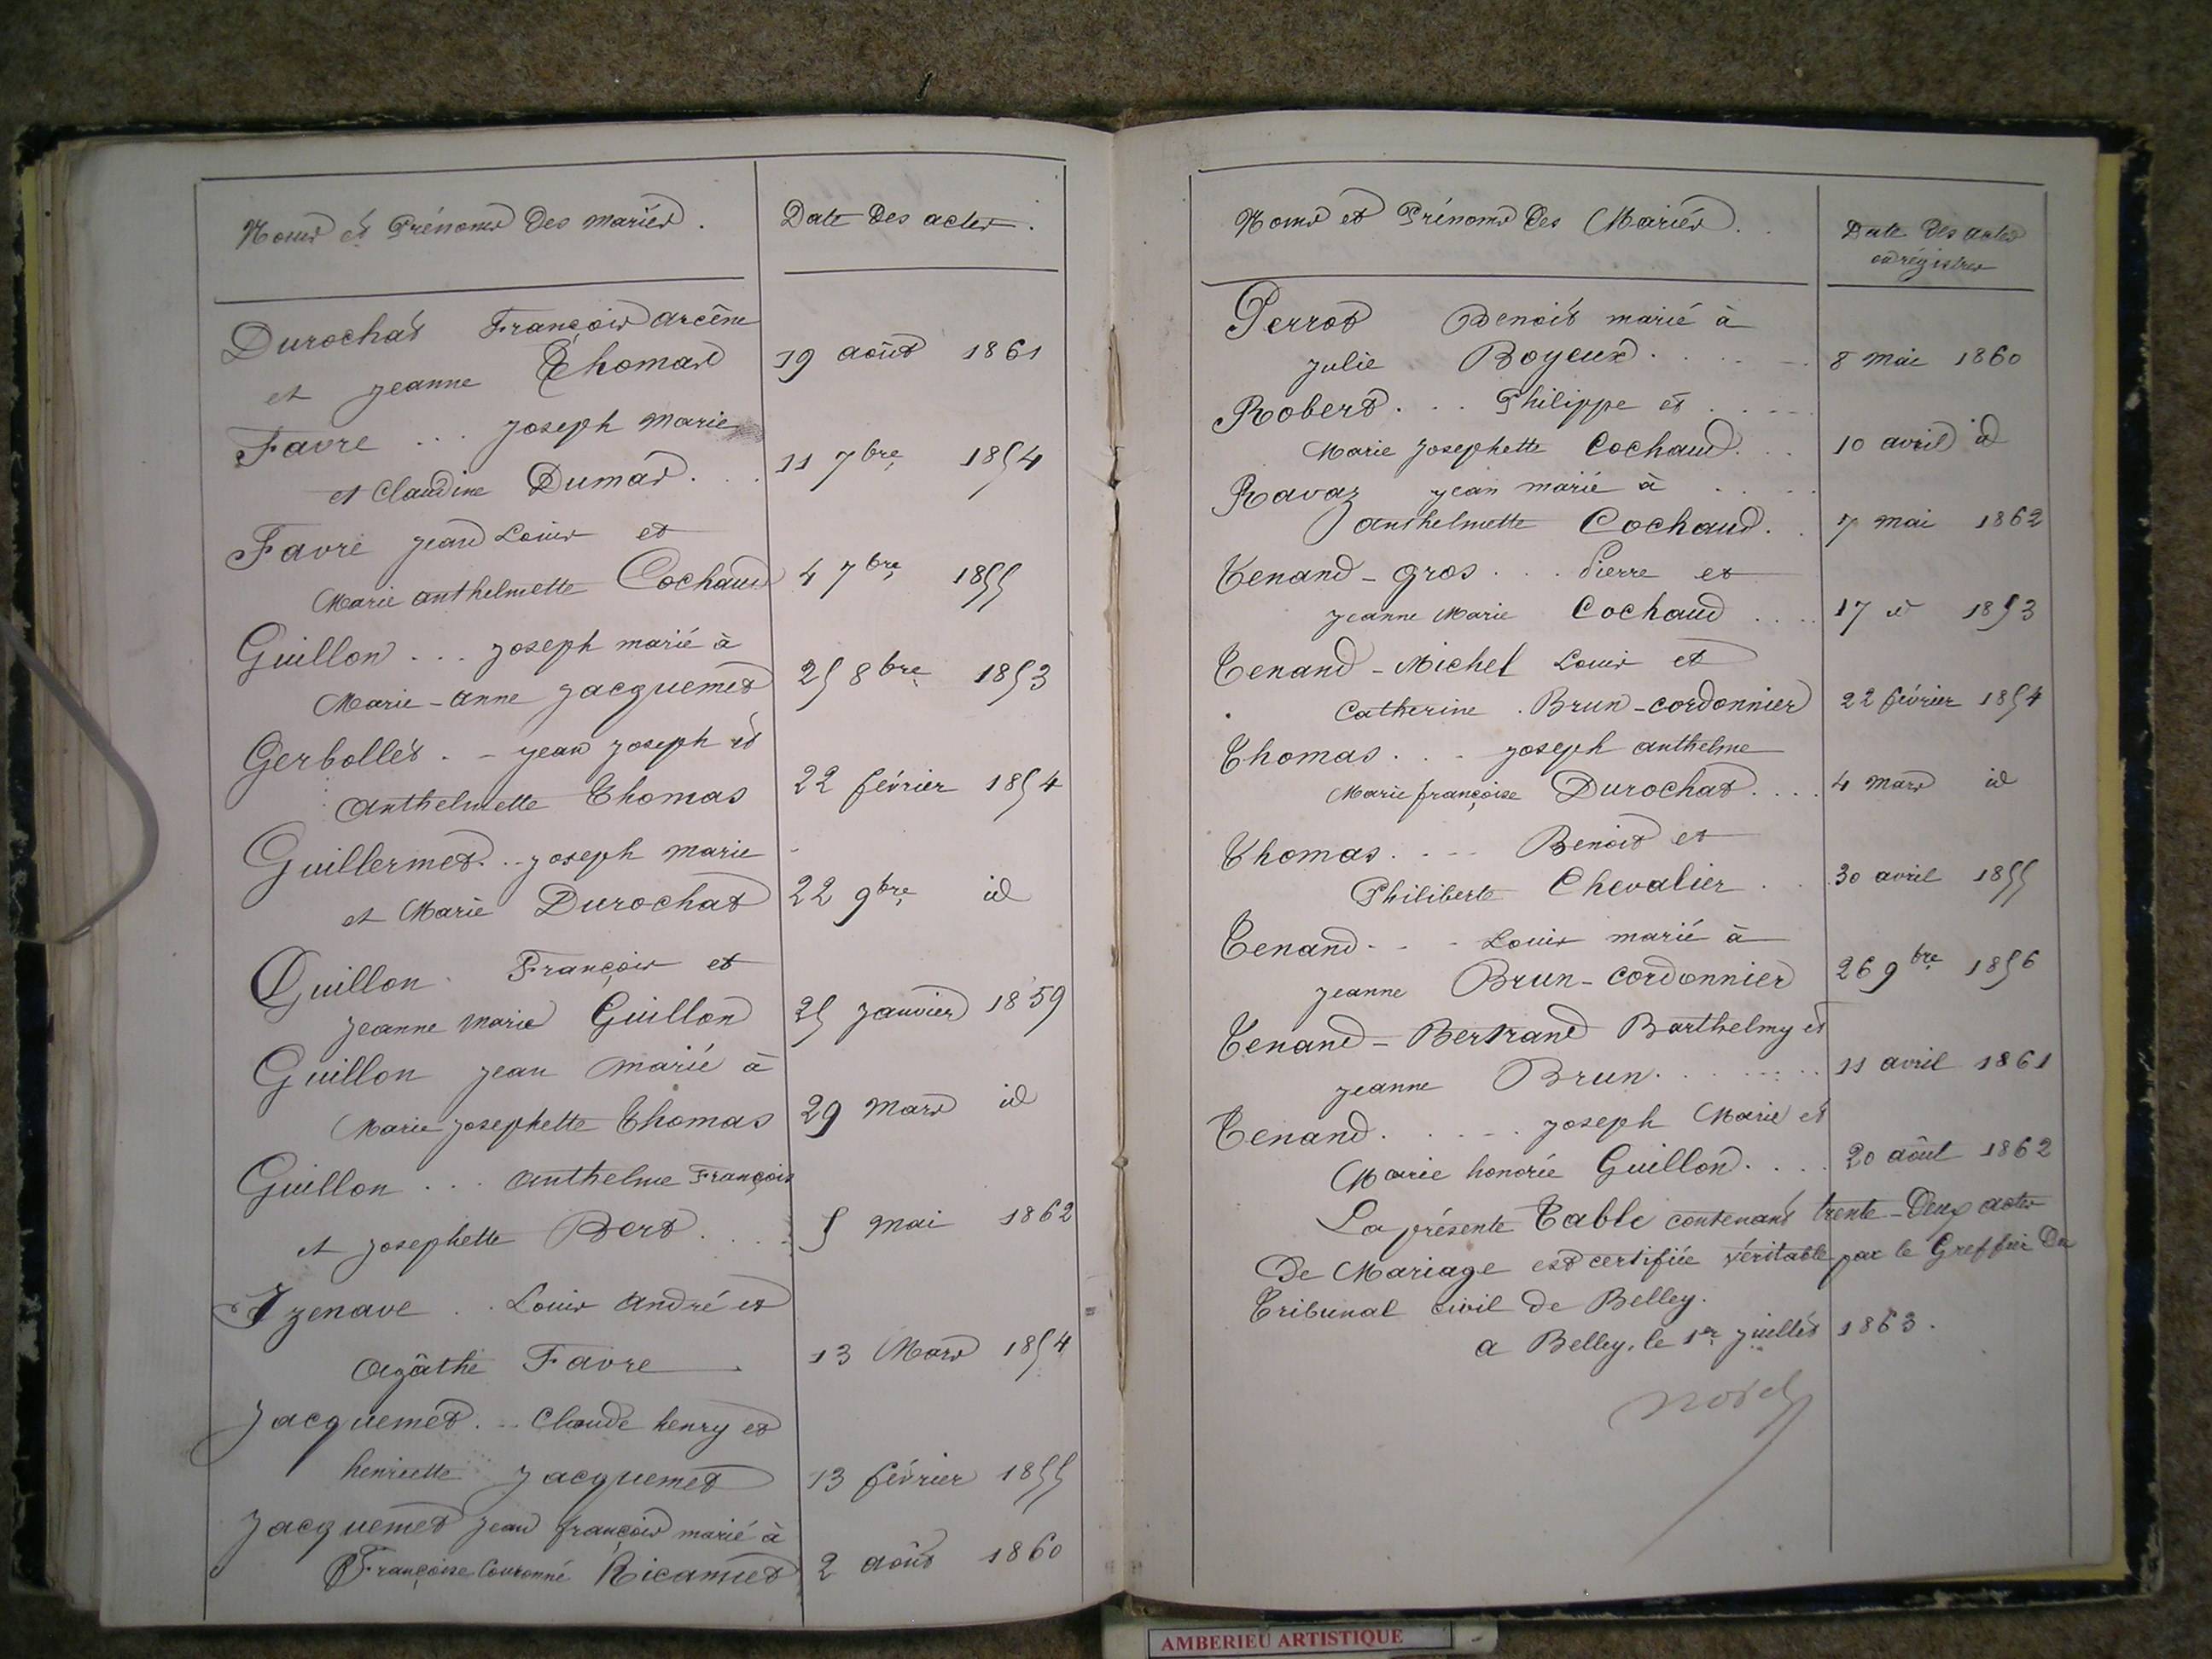 Noms et Prénoms Des mariés.
Date Des actes.
Durochat François arcêne
et jeanne Thomas 19 août 1861
Favre ... joseph marie
et Claudine Dumas . . . 11 7bre 1854
Favre jean Louis et
Marie anthelmette Cochaud 4 7bre 1855
Guillon ... joseph marié à
Marie-anne jacquemet 25 8bre 1853
Gerbollet . - jean joseph et
Anthelmette Thomas 22 février 1854
Guillermet . .. joseph marie
et Marie Durochat 22 9bre id
Guillon . François et
jeanne marie Guillon 25 janvier 1859
Guillon jean marié à
Marie josephette Thomas 29 mars id
Guillon ... anthelme François
et josephette Bert . . . . 5 mai 1862
Izenave . . Louis André et
Agâthe Favre 13 Mars 1854
Jacquemet . .. Claude henry et
henriette Jacquemet 13 février 1855
Jacquemet jean françois marié à
Françoise Couronné 2 août 1860
Noms et Prénoms Des Mariés.
Date Des actes
ou régistres
Perrot Benoit marié à
julie Boyeux . . . . . 8 mai 1860
Robert . . . Philippe et . . . .
Marie josephette Cochaud . . . 10 avril id
Ravaz jean marié à . . . .
anthelmette Cochaud . . 7 mai 1862
Tenand-gros . . . Pierre et
jeanne Marie Cochaud . . . . 17 id 1853
Tenand-Michel Louis et
Catherine . Brun-cordonnier 22 février 1854
Thomas . . . joseph anthelme
Marie françoise Durochat . . . . 4 mars id
Thomas . . . . Benoit et
Philiberte Chevalier . . 30 avril 1855
Tenand - - - Louis marié à
jeanne Brun-cordonnier 26 9bre 1856
Tenand-Bertrand Barthelmy et
jeanne Brun . . . . . . . 11 avril 1861
Tenand . . . . . joseph Marie et
Marie honorée Guillon . . . . 20 août 1862
La présente Table contenant trente-Deux actes
De Mariage est certifiée véritable par le Greffier Du
Tribunal civil de Belley.
a Belley, le 1er juillet 1863.
AMBERIEU ARTISTIQUE